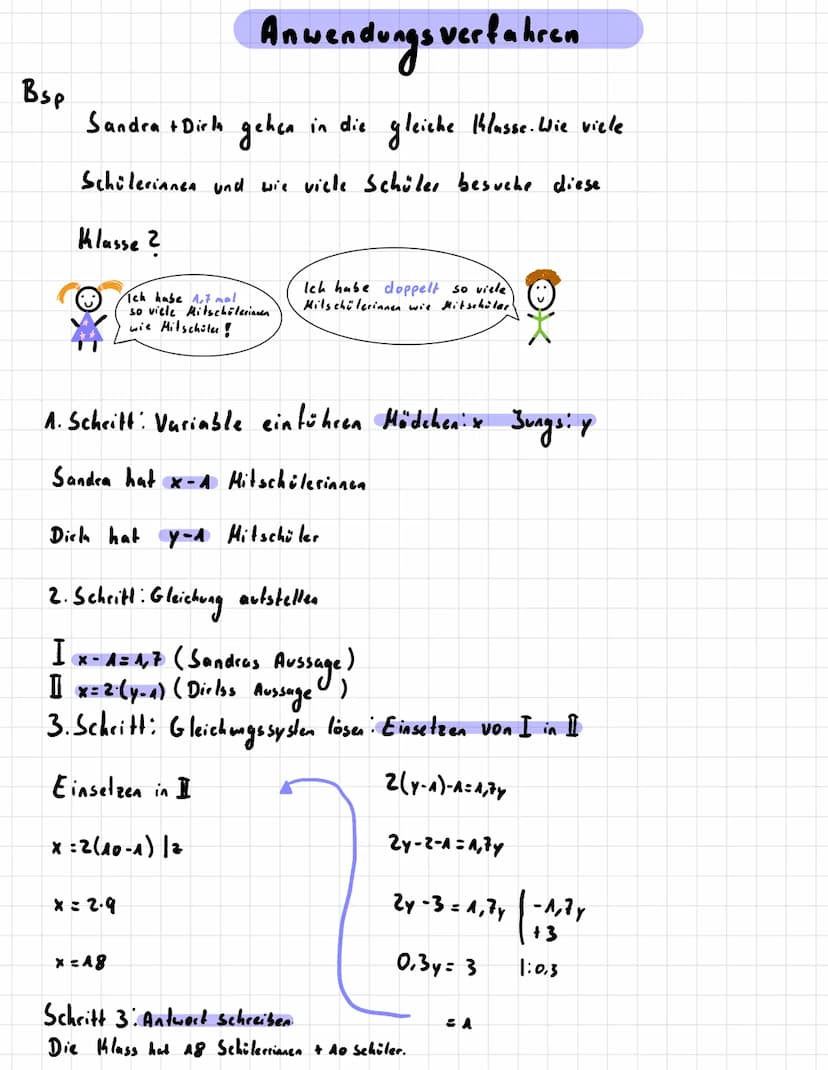 Anwendungsverfahren
Bsp
Sandra + Dirk gehen in die gleiche Klasse. Wie viele
Schülerinnen und wie viele Schüler besuche diese
Klasse?
Ich habe 1,7 mal
so viele Mitschülerinnen
wie Mitschüler!
Ich habe doppelt so viele
Mitschülerinnen wie Mitschüler
1. Schritt: Variable einführen Mädchen: x Jungs: y
Sandra hat x-1 Mitschülerinnen
Dirk hat y-1 Mitschüler
2. Schritt: Gleichung aufstellen
I x-1=1,7 (Sandras Aussage)
II x=2·(y-1) (Dirkss Aussage)
3. Schritt: Gleichungssystem lösen: Einsetzen von I in II
Einsetzen in II
x=2(10-1) |2
x=2·9
x=18
2(y-1)-1=1,7y
2y-2-1=1,7y
2y-3=1,7y |-1,7y
+3
0,3y=3 |:0,3
=1
Schritt 3: Antwort schreiben
Die Klass hat 18 Schülerrinnen + 10 Schüler.